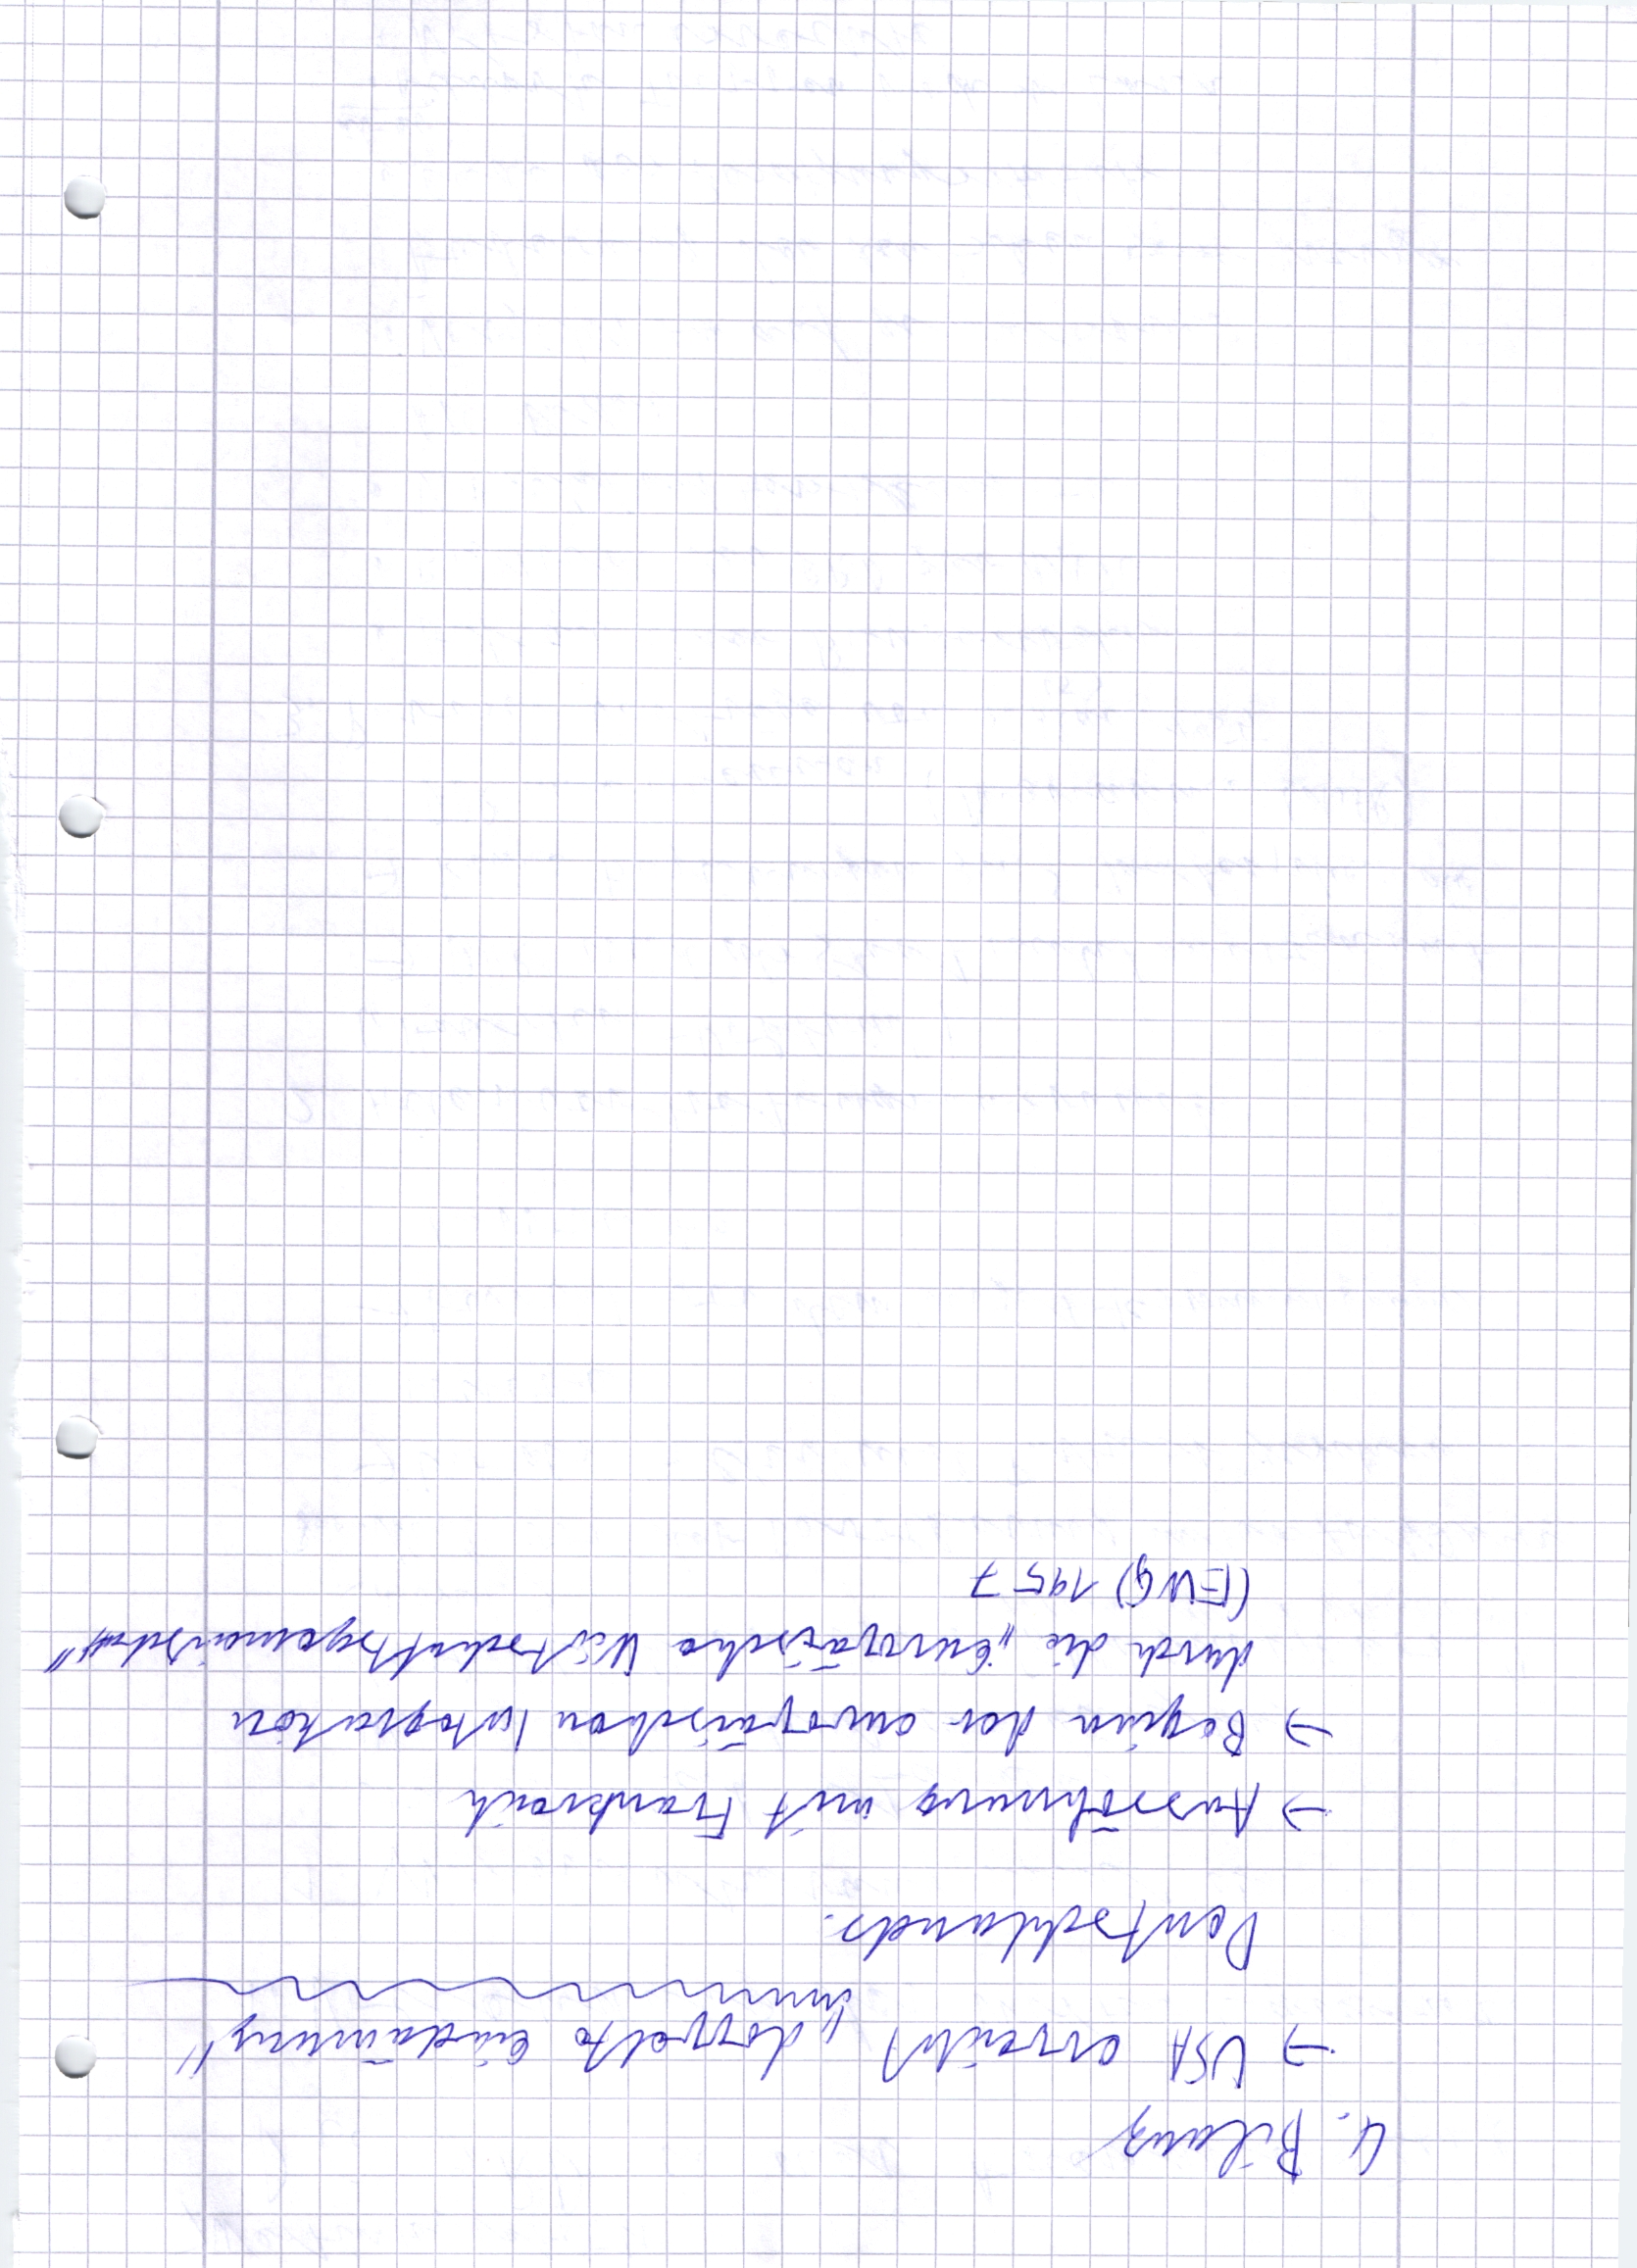 4. Bilanz
→ USA erreicht „doppelte Eindämung"
Deutschlands.
→ Aussöhnung mit Frankreich
→ Beginn der europäischen Integration
durch die „Europäische Wirtschaftsgemeinschaft"
(EWG) 1957